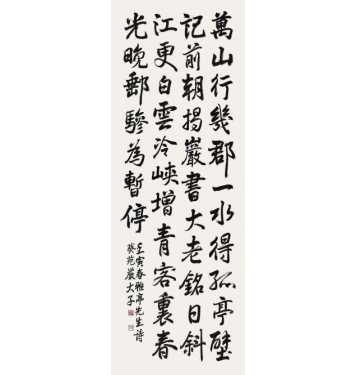 萬山行幾郡一水得孤亭壁
記前朝揭巖書大老銘日斜
江更白雲冷峽增青客裏春
光晚郵驂為暫停
壬寅春雅亭先生詩
癸范嚴大子